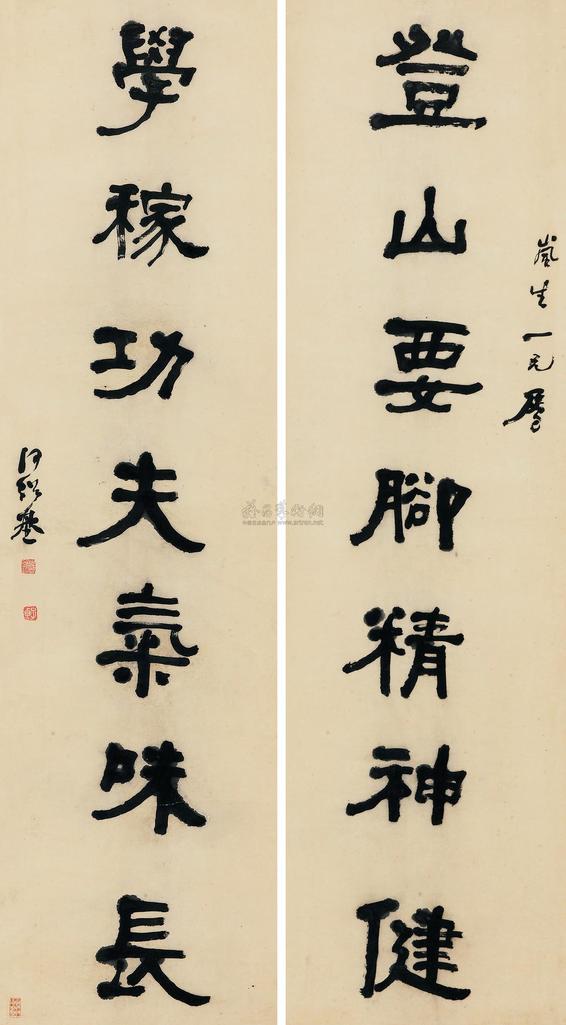 嵐生一兄屬
登山要腳精神健
學稼功夫氣味長
何紹基
www.artron.net